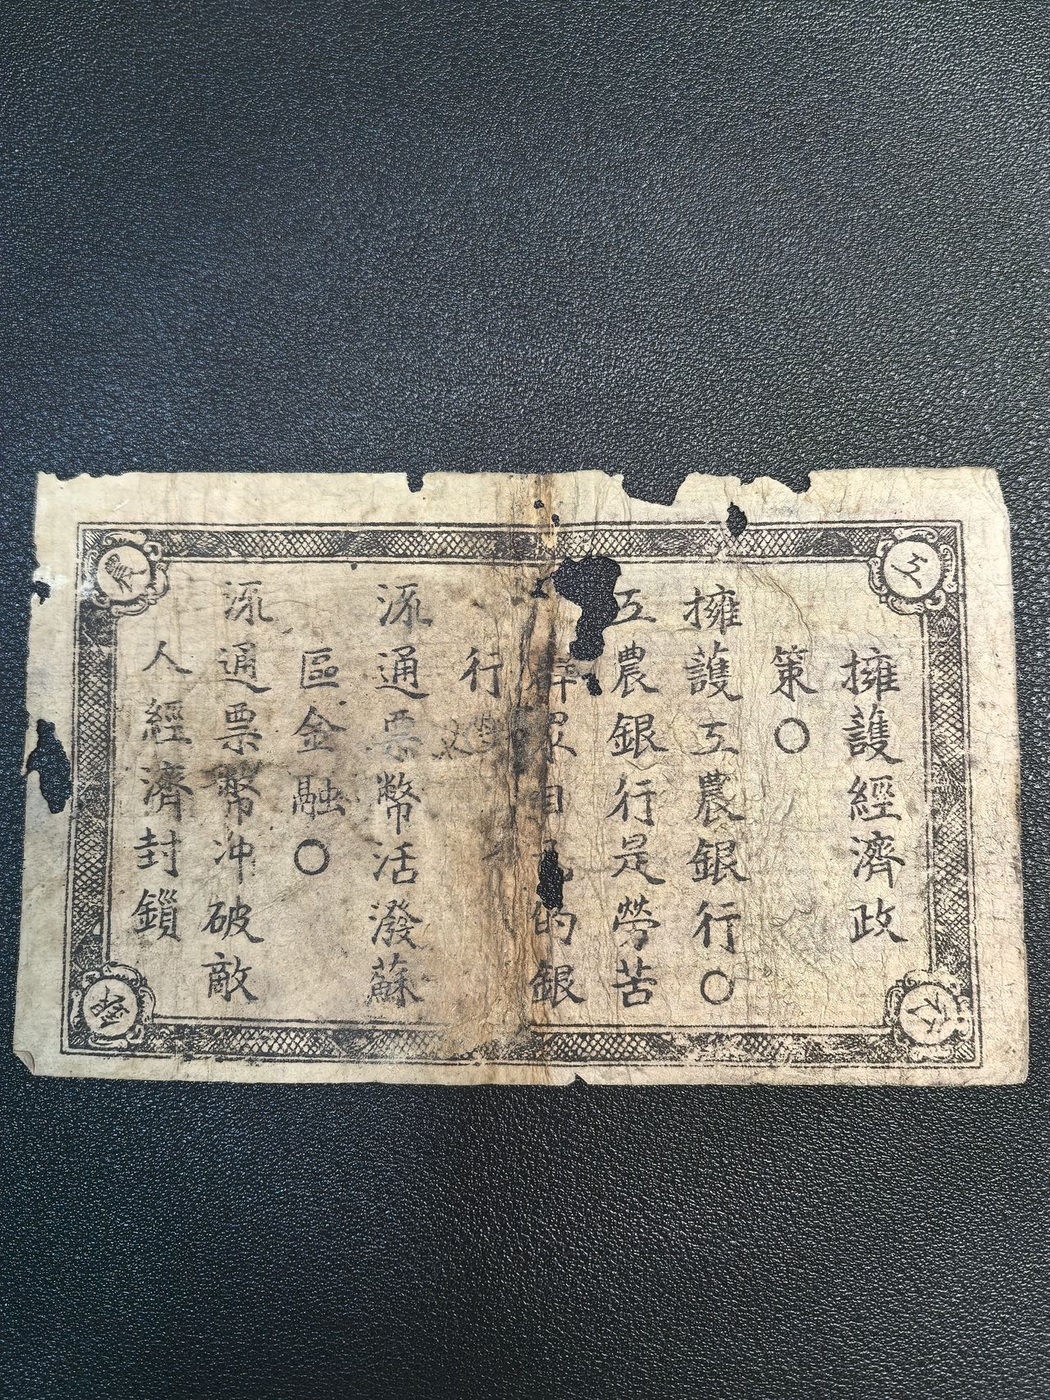 擁護經濟政
策〇
擁護工農銀行〇
工農銀行是勞苦
群眾自己的銀
行
流通票幣活潑蘇
區金融〇
流通票幣冲破敵
人經濟封鎖